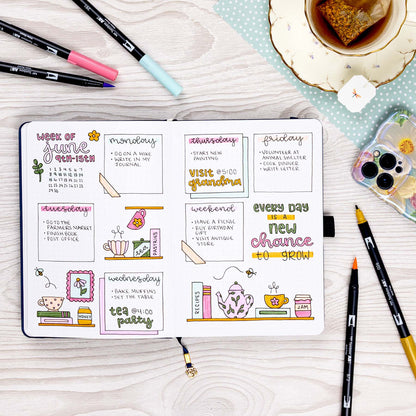 WEEK OF
June
9TH-15TH
monday
• GO ON A HIKE
• WRITE IN MY
JOURNAL
tuesday
• GO TO THE
FARMERS MARKET
• FINISH BOOK
• POST OFFICE
PASTRIES
HONEY
wednesday
• BAKE MUFFINS
• SET THE TABLE
tea @4:00
party
thursday
• START NEW
PAINTING
VISIT @5:00
grandma
friday
• VOLUNTEER AT
ANIMAL SHELTER
• COOK DINNER
• WRITE LETTER
weekend
• HAVE A PICNIC
• BUY BIRTHDAY
GIFT
• VISIT ANTIQUE
STORE
EVERY DAY
IS A
NEW
chance
to GROW
RECIPES
JAM